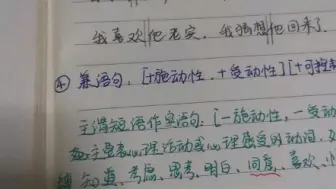 我喜欢‖他老实。我‖猜想他回来了.
④ 兼语句，[+施动性，+受动性][+可控
主谓短语作宾语句：[-施动性，-受动
主要表心理活动或心理感受的动词，
知道、考虑、思考、明白、同意、喜欢、